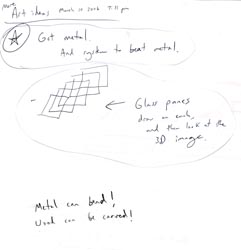 More
Art ideas March 10 2006 7:11 pm
Get metal.
And system to beat metal.
Glass panes
draw on each,
and then look at the
3D image.
Metal can bend!
Wood can be carved!